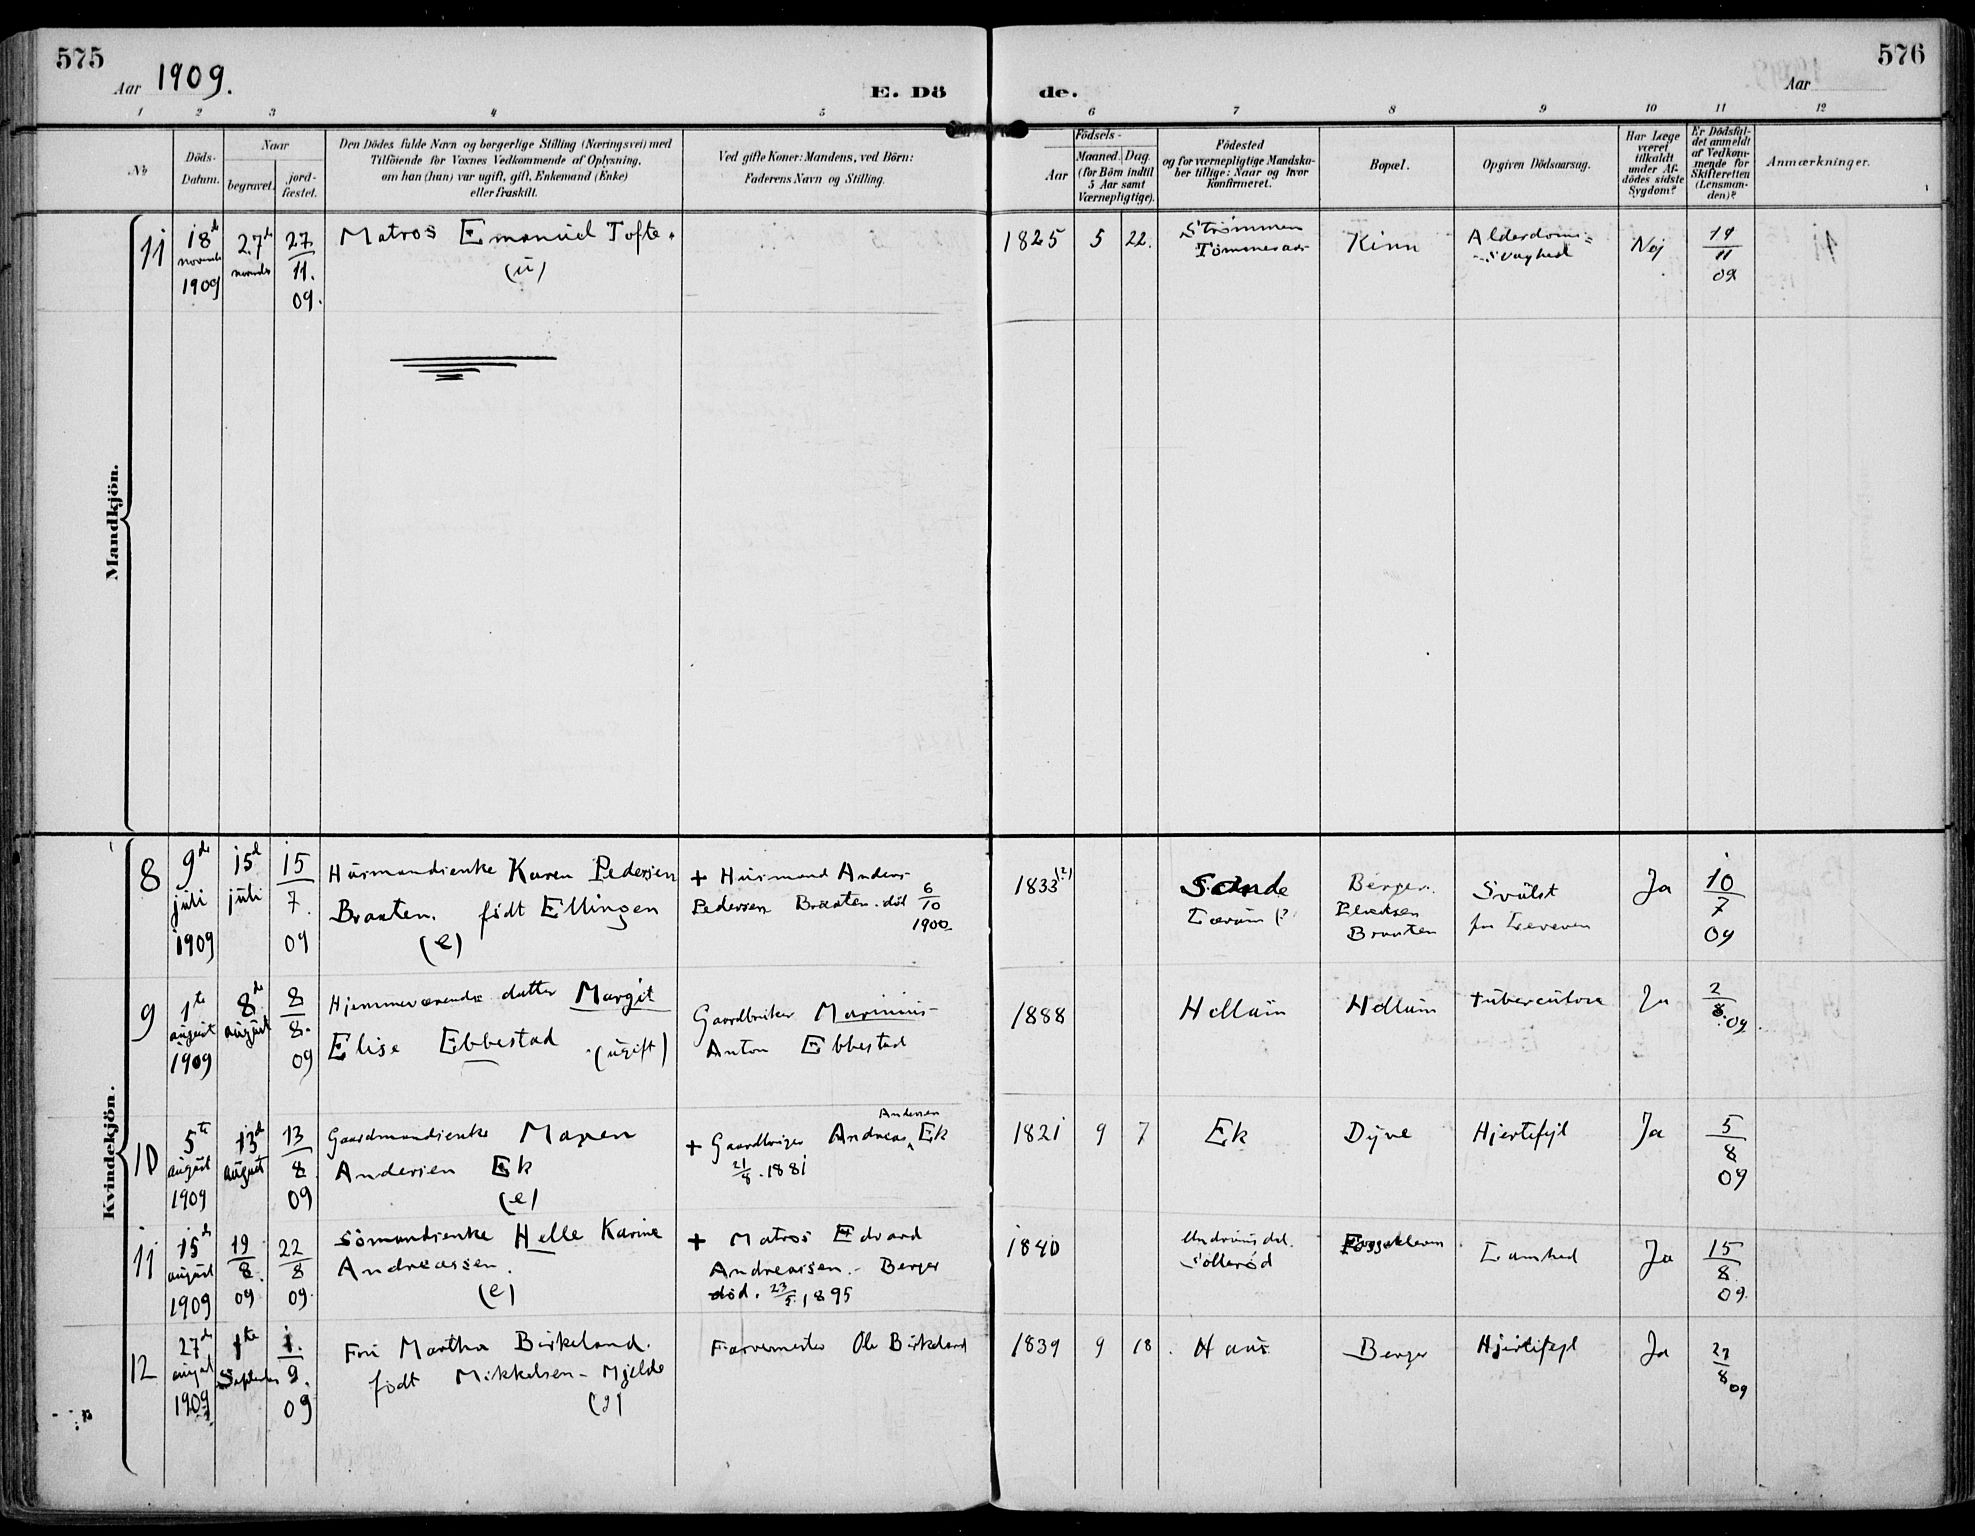 575
576
Aar 1909.
E. Dö
de.
Aar
1 2 3 4 5 6 7 8 9 10 11 12
No
Döds-
Datum.
Naar
begravet.
jord-
fæstet.
Den Dödes fulde Navn og borgerlige Stilling (Næringsvei) med
Tilföiende for Voxnes Vedkommende af Oplysning,
om han (hun) var ugift, gift, Enkemand (Enke)
eller fraskilt.
Ved gifte Koner: Mandens, ved Börn:
Faderens Navn og Stilling.
Födsels-
Aar
Maaned. Dag.
(for Börn indtil
5 Aar samt
Værnepligtige).
Födested
og for værnepligtige Mandska-
ber tillige: Naar og hvor
konfirmeret.
Bopæl.
Opgiven Dödsaarsag.
Har Læge
været
tilkaldt
under Af-
dödes sidste
Sygdom?
Er Dödsfal-
det anmeldt
af Vedkom-
mende for
Skifteretten
(Lensman-
den)?
Anmærkninger.
Mandkjön.
11
18d
novemb
1909
27d
novemb
27
11.
09.
Matros Emanuel Tofte.
(u)
1825 5 22.
Strömmen
Kinn
Alderdoms=
svaghed
Nej
19
11
09
Kvindekjön.
8
9de
juli
1909
15d
juli
15
7.
09
Husmandsenke Karen Pedersen
Braaten. født Ellingen
(e)
+ Husmand Anders
Pedersen Braaten. död 6/10
1900
1833 (?)
Sande
Berger.
Braaten
Svulst
paa Leveren
Ja
10
7
09
9
1te
august
1909
8de
august
8
8.
09
Hjemmeværende datter Margit
Elise Ebbestad (ugift)
Gaardbruker Marinius
Anton Ebbestad
1888
Hellum
Hellum
tuberculose
Ja
2
8.09.
10
5te
august
1909
13d
august
13
8
09
Gaardmandsenke Maren
Andersen Ek
(e)
Andersen
+ Gaardbruger Andreas Ek
21/8.1881
1821 9 7
Ek
Dyve
Hjertefejl
Ja
5
8
09
11
15d
august
1909
19
8.
09
22
8
09.
Sömandsenke Helle Karine
Andreassen.
(e)
+ Matros Edvard
Andreassen. - Berger
död. 23/5.1895
1840
Sollerød
Lamhed
Ja
15
8.
09.
12
27d
august
1909
1te
September
1.
9.
09
Fru Martha Birkeland.
født Mikkelsen - Mjelde
(g)
Farvermester Ole Birkeland
1839 9 18.
Haus
Berger
Hjertefejl
Ja
27
8 09